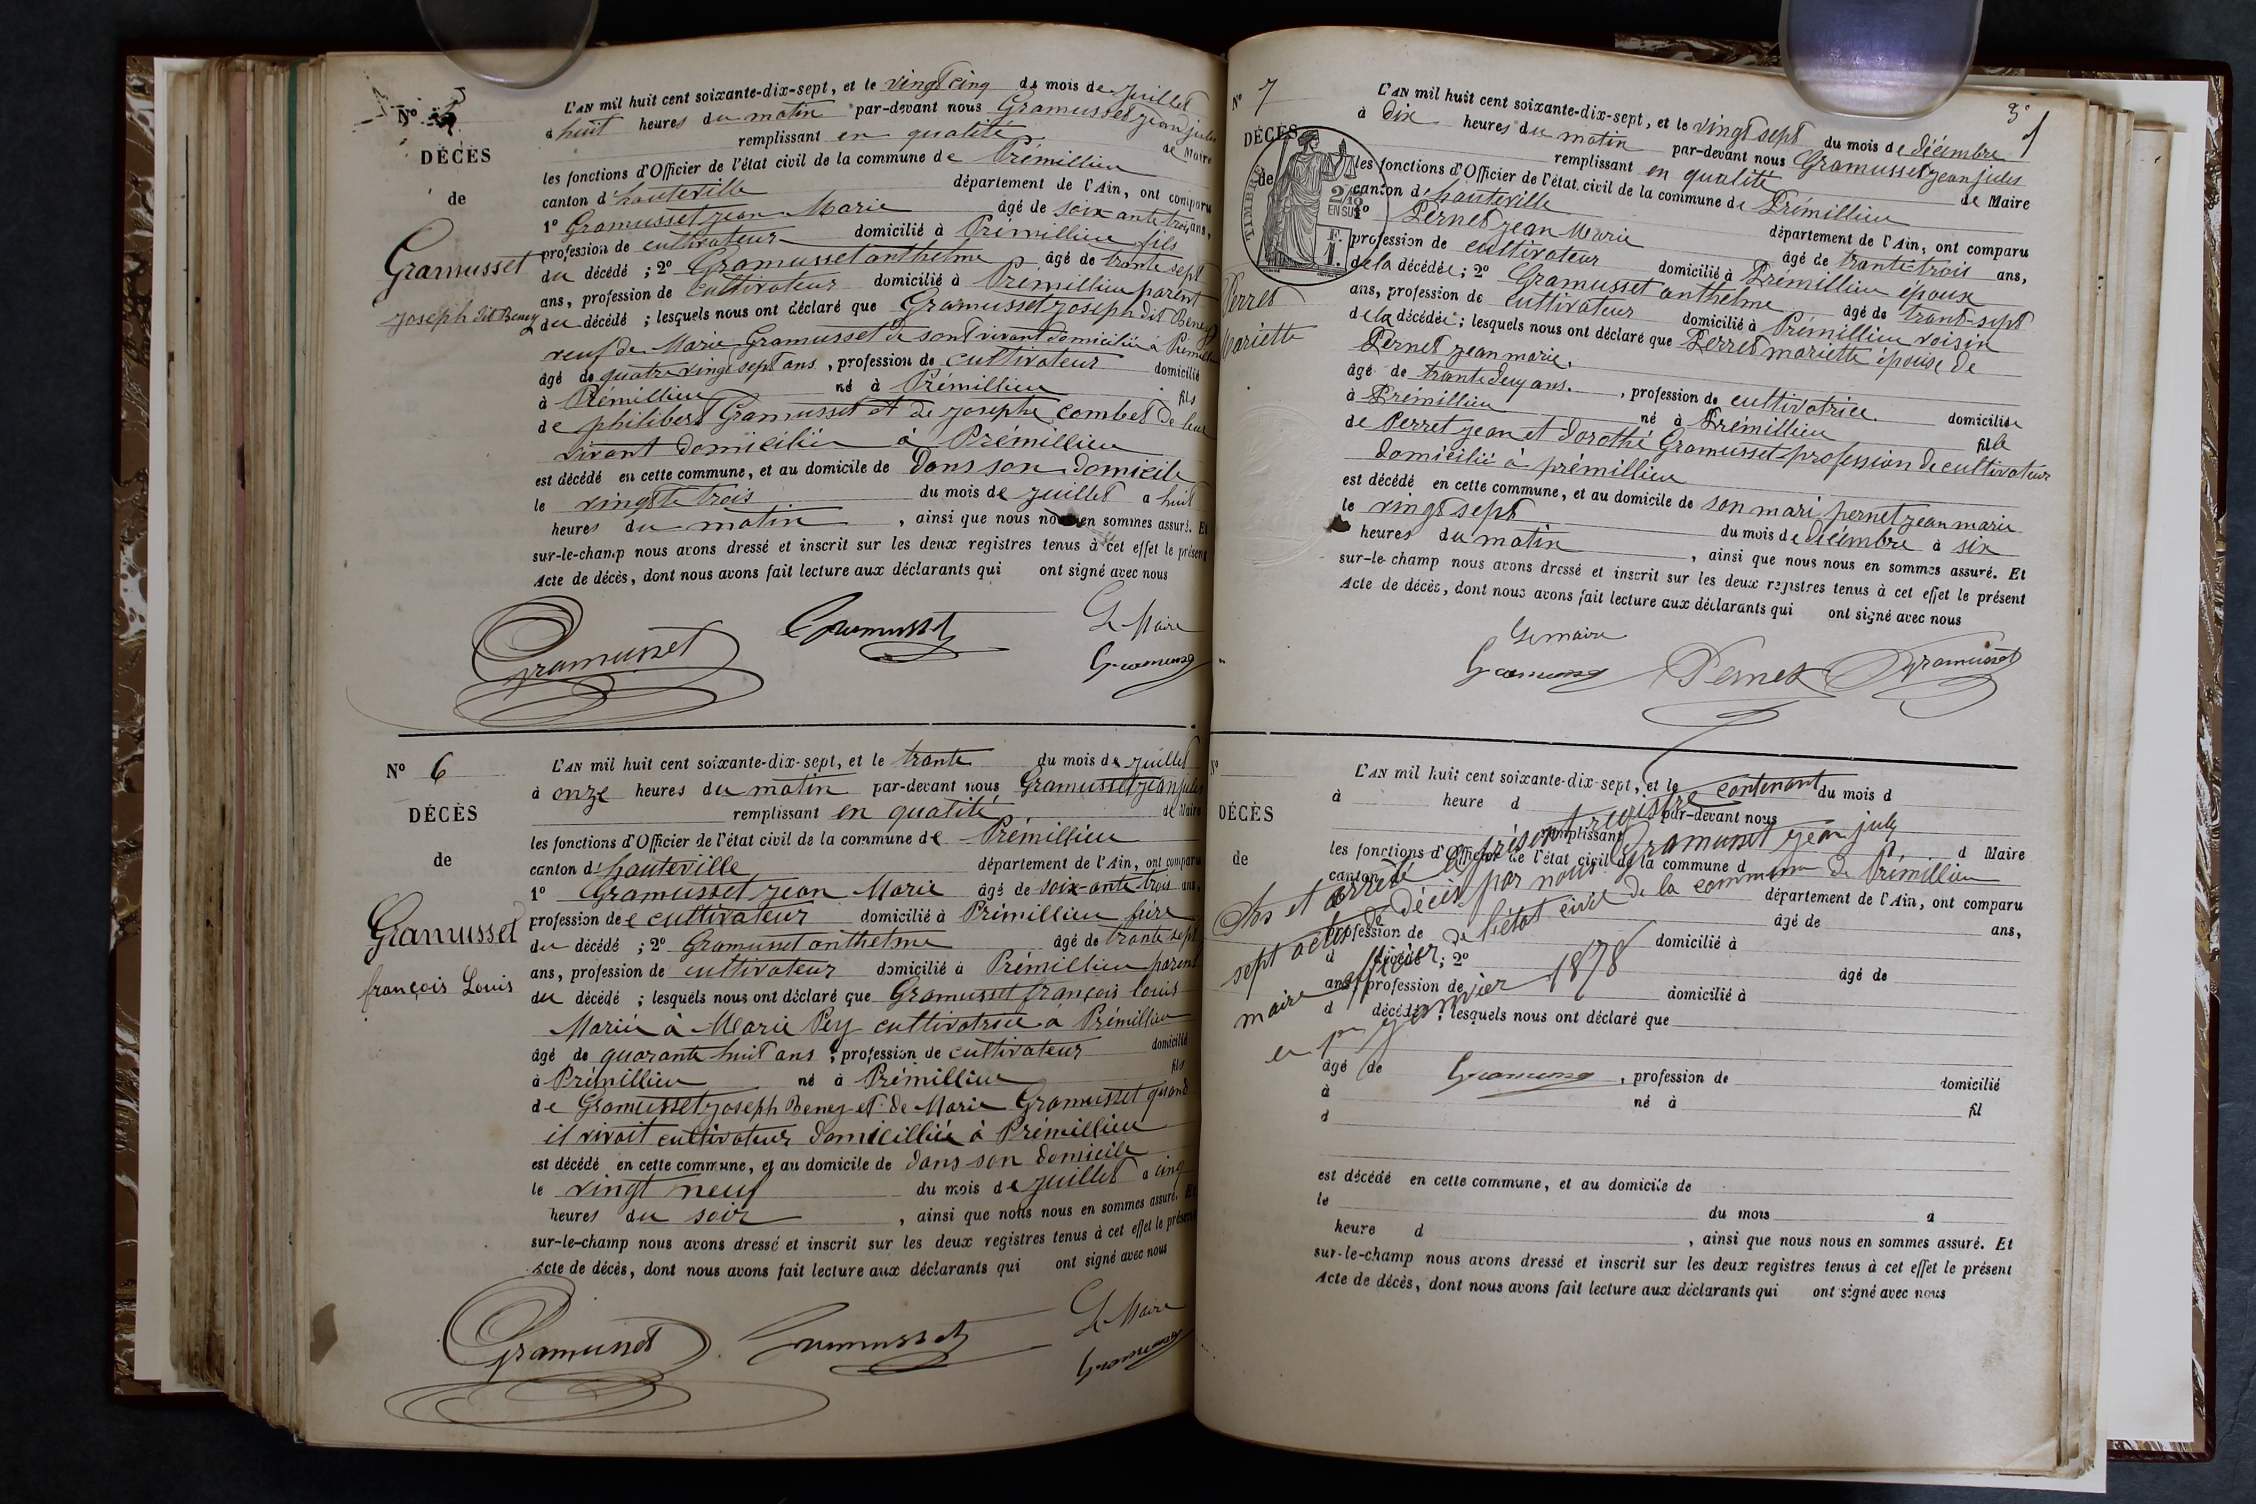 N° 5
DÉCÈS
de
Gramusset
joseph dit Beney
L'AN mil huit cent soixante-dix-sept, et le vingt cinq du mois de juillet
à huit heures du matin par-devant nous Gramusset jean jules
remplissant en qualité de Maire
les fonctions d'Officier de l'état civil de la commune de Prémillieu
canton d'hauteville département de l'Ain, ont comparu
1° Gramusset jean Marie âgé de soixante trois ans,
profession de cultivateur domicilié à Prémillieu fils
du décédé ; 2° Gramusset anthelme âgé de trante sept
ans, profession de cultivateur domicilié à Prémillieu parent
du décédé ; lesquels nous ont déclaré que Gramusset joseph dit Beney
veuf de Marie Gramusset de sont vivant domicilié à Prémillieu
âgé de quatre vingt sept ans, profession de cultivateur domicilié
à Prémillieu né à Prémillieu fils
de philibert Gramusset et de josephe combet de leur
vivant domiciliée à Prémillieu
est décédé en cette commune, et au domicile de Dans son domicile
le vingte trois du mois de juillet a huit
heures du matin, ainsi que nous nous en sommes assuré. Et
sur-le-champ nous avons dressé et inscrit sur les deux registres tenus à cet effet le présent
Acte de décès, dont nous avons fait lecture aux déclarants qui ont signé avec nous
Gramusset Gramusset Le Maire
Gramusset
N° 6
DÉCÈS
de
Gramusset
françois Louis
L'AN mil huit cent soixante-dix-sept, et le trante du mois de juillet
à onze heures du matin par-devant nous Gramusset jean jules
remplissant en qualité de Maire
les fonctions d'Officier de l'état civil de la commune de Prémillieu
canton d'hauteville département de l'Ain, ont comparu
1° Gramusset jean Marie âgé de soix-ante trois ans,
profession de cultivateur domicilié à Prémillieu frère
du décédé ; 2° Gramusset anthelme âgé de trante sept
ans, profession de cultivateur domicilié à Prémillieu parent
du décédé ; lesquels nous ont déclaré que Gramusset françois louis
Mariée à Marie Pey cultivatrice a Prémillieu
âgé de quarante huit ans, profession de cultivateur domicilié
à Prémillieu né à Prémillieu fils
de Gramusset joseph Beney et de Marie Gramusset quand
il vivait cultivateur domicilliée à Prémillieu
est décédé en cette commune, et au domicile de dans son domicile
le vingt neuf du mois de juillet a cinq
heures du soir, ainsi que nous nous en sommes assuré. Et
sur-le-champ nous avons dressé et inscrit sur les deux registres tenus à cet effet le présent
Acte de décès, dont nous avons fait lecture aux déclarants qui ont signé avec nous
Gramusset Gramusset Le Maire
Gramusset
3e
N° 7
DÉCÈS
de
TIMBRE
2/10
EN SUS
F.
1.
Perret
Mariette
L'AN mil huit cent soixante-dix-sept, et le vingt sept du mois de décembre
à Dix heures du matin par-devant nous Gramusset jean jules
remplissant en qualité de Maire
les fonctions d'Officier de l'état civil de la commune de Prémillieu
canton d'hauteville département de l'Ain, ont comparu
1° Pernet jean Marie âgé de trante-trois ans,
profession de cultivateur domicilié à Prémillieu époux
de la décédée ; 2° Gramusset anthelme âgé de trant-sept
ans, profession de cultivateur domicilié à Prémillieu voisin
de la décédée ; lesquels nous ont déclaré que Perret mariette épouse de
Pernet jean marie.
âgé de trante deux ans., profession de cultivatrice domiciliée
à Prémillieu né à Prémillieu fille
de Perret jean et Dorothé Gramusset profession de cultivateur
domicilié à prémillieu
est décédé en cette commune, et au domicile de son mari pernet jean marie
le vingt sept du mois de décembre à six
heures du matin, ainsi que nous nous en sommes assuré. Et
sur-le-champ nous avons dressé et inscrit sur les deux registres tenus à cet effet le présent
Acte de décès, dont nous avons fait lecture aux déclarants qui ont signé avec nous
Le maire
Gramusset Pernet Gramusset
N°
DÉCÈS
de
L'AN mil huit cent soixante-dix-sept, et le du mois d
à heure d par-devant nous
remplissant d Maire
les fonctions d'Officier de l'état civil de la commune d
canton d département de l'Ain, ont comparu
âgé de ans,
profession de domicilié à
d décédé ; 2° âgé de
ans, profession de domicilié à
d décédé ; lesquels nous ont déclaré que
âgé de , profession de domicilié
à né à fil
d
est décédé en cette commune, et au domicile de
le du mois à
heure d , ainsi que nous nous en sommes assuré. Et
sur-le-champ nous avons dressé et inscrit sur les deux registres tenus à cet effet le présent
Acte de décès, dont nous avons fait lecture aux déclarants qui ont signé avec nous
Clos et arrêté le présent registre contenant
sept actes de décès par nous Gramusset jean jules
maire officier de l'état civil de la commune de Prémillieu
le 1er janvier 1878
Gramusset